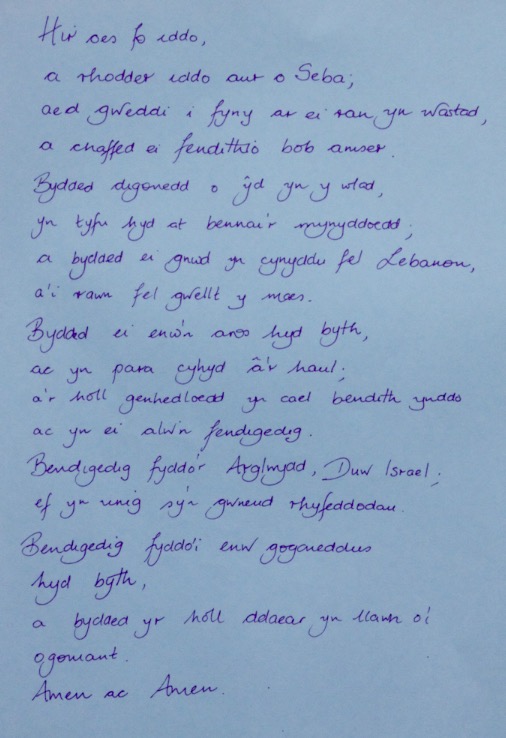 Hir oes fo iddo,
a rhodder iddo aur o Seba;
aed gweddi i fyny ar ei ran yn wastad,
a chaffed ei fendithio bob amser.
Bydded digonedd o ŷd yn y wlad,
yn tyfu hyd at bennau'r mynyddoedd;
a bydded ei gnwd yn cynyddu fel Lebanon,
a'i rawn fel gwellt y maes.
Bydded ei enw'n aros hyd byth,
ac yn para cyhyd â'r haul;
a'r holl genhedloedd yn cael bendith ynddo
ac yn ei alw'n fendigedig.
Bendigedig fyddo'r Arglwydd, Duw Israel;
ef yn unig sy'n gwneud rhyfeddodau.
Bendigedig fyddo'i enw gogoneddus
hyd byth,
a bydded yr holl ddaear yn llawn o'i
ogoniant.
Amen ac Amen.